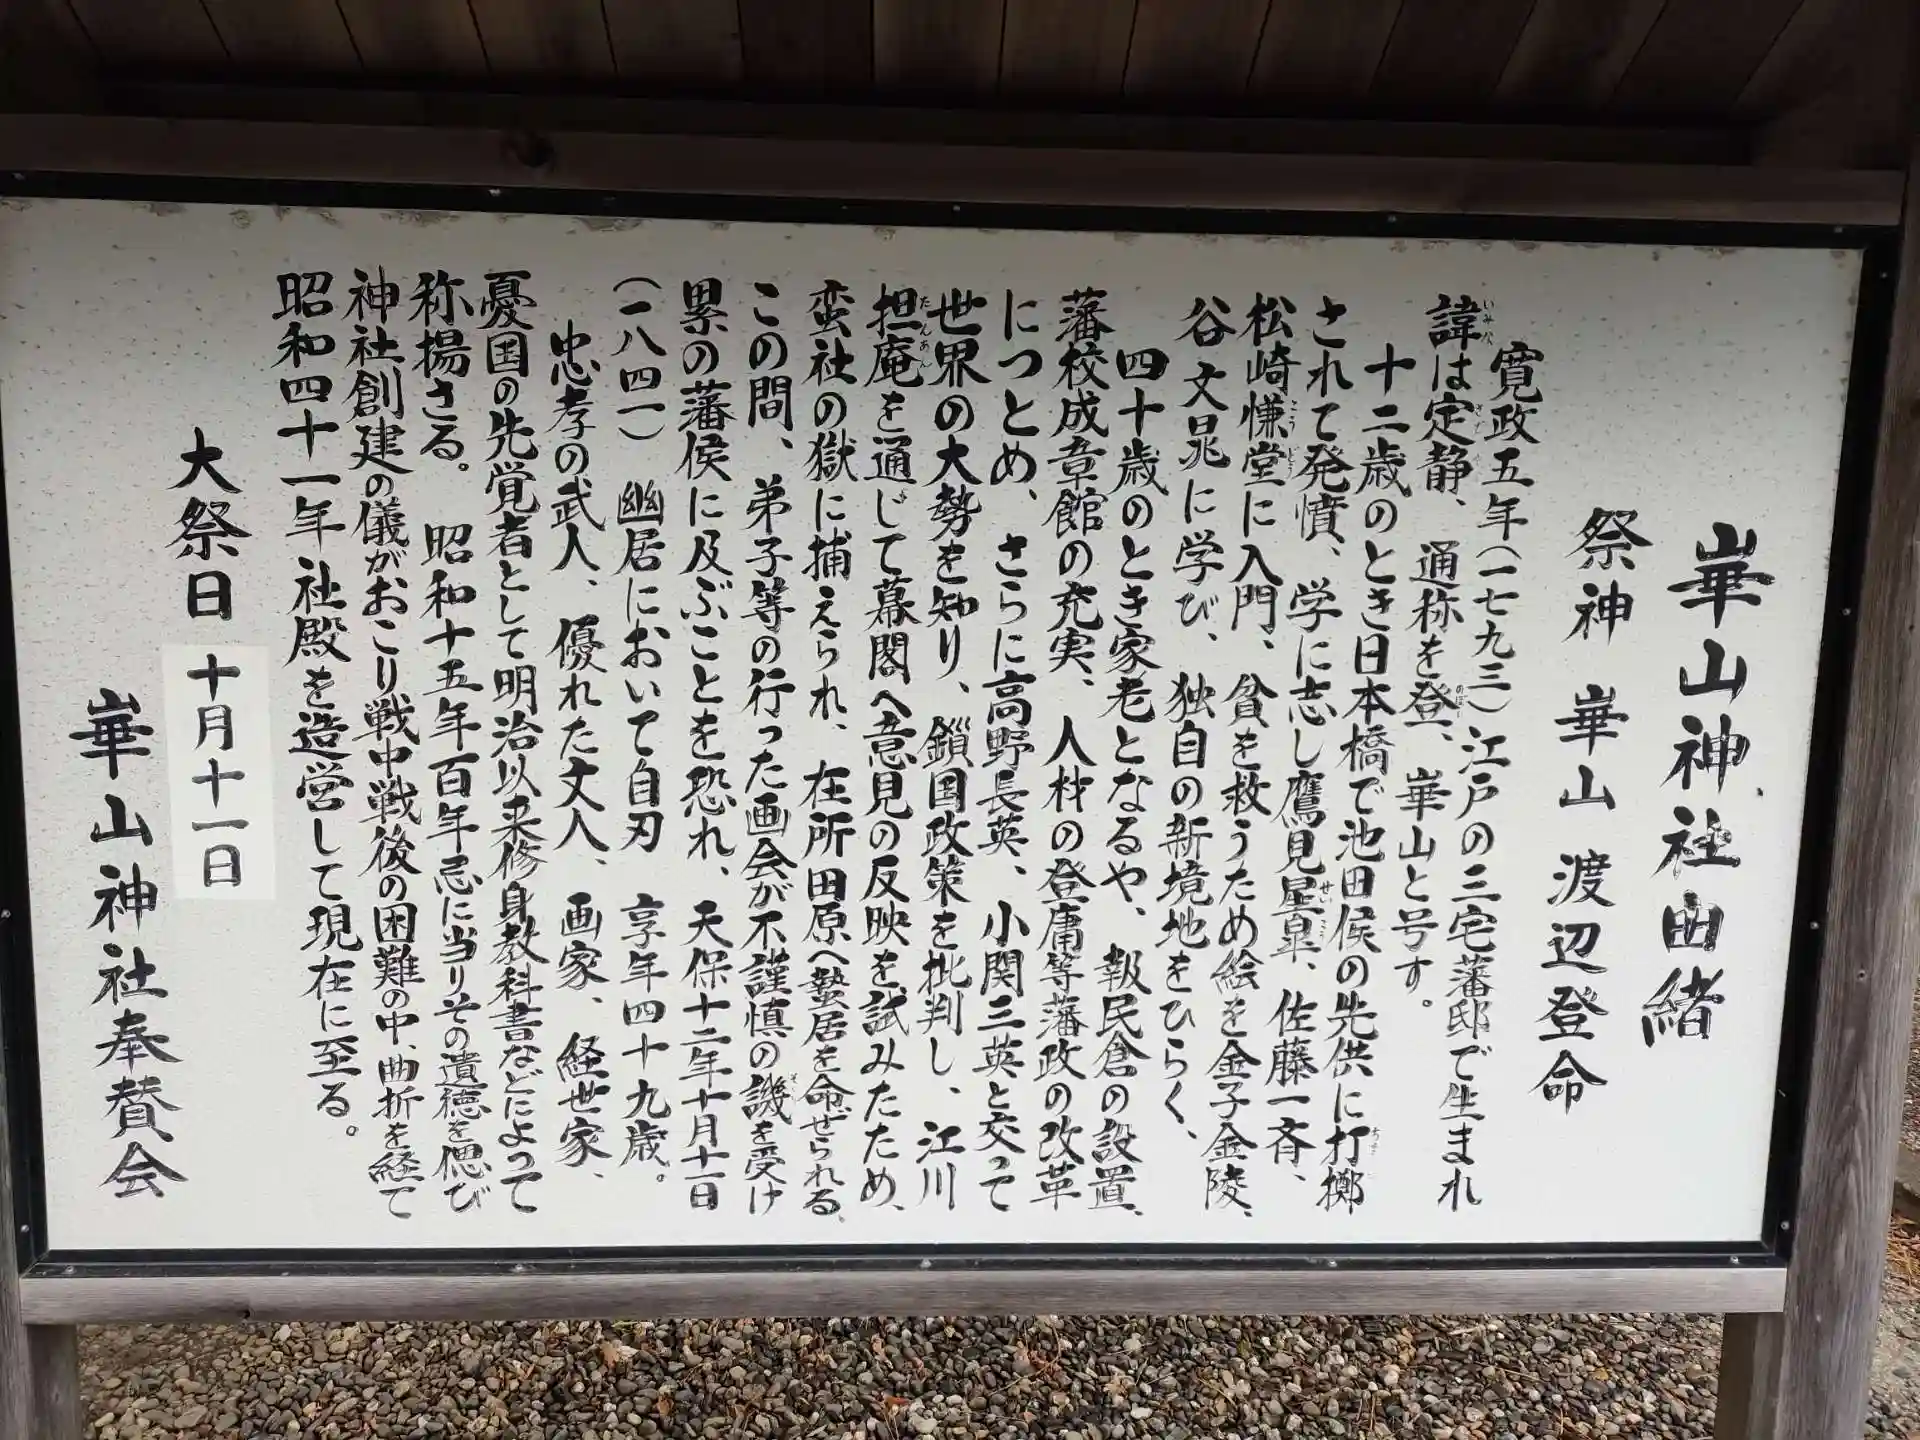 崋山神社由緒
祭神　崋山　渡辺登命
寛政五年（一七九三）江戸の三宅藩邸で生まれ
諱は定静、通称を登、崋山と号す。
十二歳のとき日本橋で池田侯の先供に打擲
されて発憤、学に志し鷹見星皐、佐藤一斉、
松崎慊堂に入門、貧を救うため絵を金子金陵、
谷文晁に学び、独自の新境地をひらく、
四十歳のとき家老となるや、報民倉の設置、
藩校成章館の充実、人材の登庸等藩政の改革
につとめ、さらに高野長英、小関三英と交って
世界の大勢を知り、鎖国政策を批判し、江川
担庵を通じて幕閣へ意見の反映を試みたため、
蛮社の獄に捕えられ、在所田原へ蟄居を命ぜられる、
この間、弟子等の行った画会が不謹慎の譏を受け
累の藩侯に及ぶことを恐れ、天保十二年十月十一日
（一八四一）幽居において自刃　享年四十九歳。
忠孝の武人、優れた文人、画家、経世家、
憂国の先覚者として明治以来修身教科書などによって
称揚さる。昭和十五年百年忌に当りその遺徳を偲び
神社創建の儀がおこり戦中戦後の困難の中、曲折を経て
昭和四十一年社殿を造営して現在に至る。
大祭日　十月十一日
崋山神社奉賛会